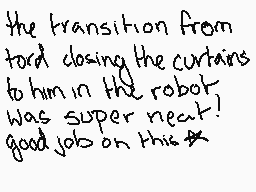 the transition from
tord closing the curtains
to him in the robot
was super neat!
good job on this ☆